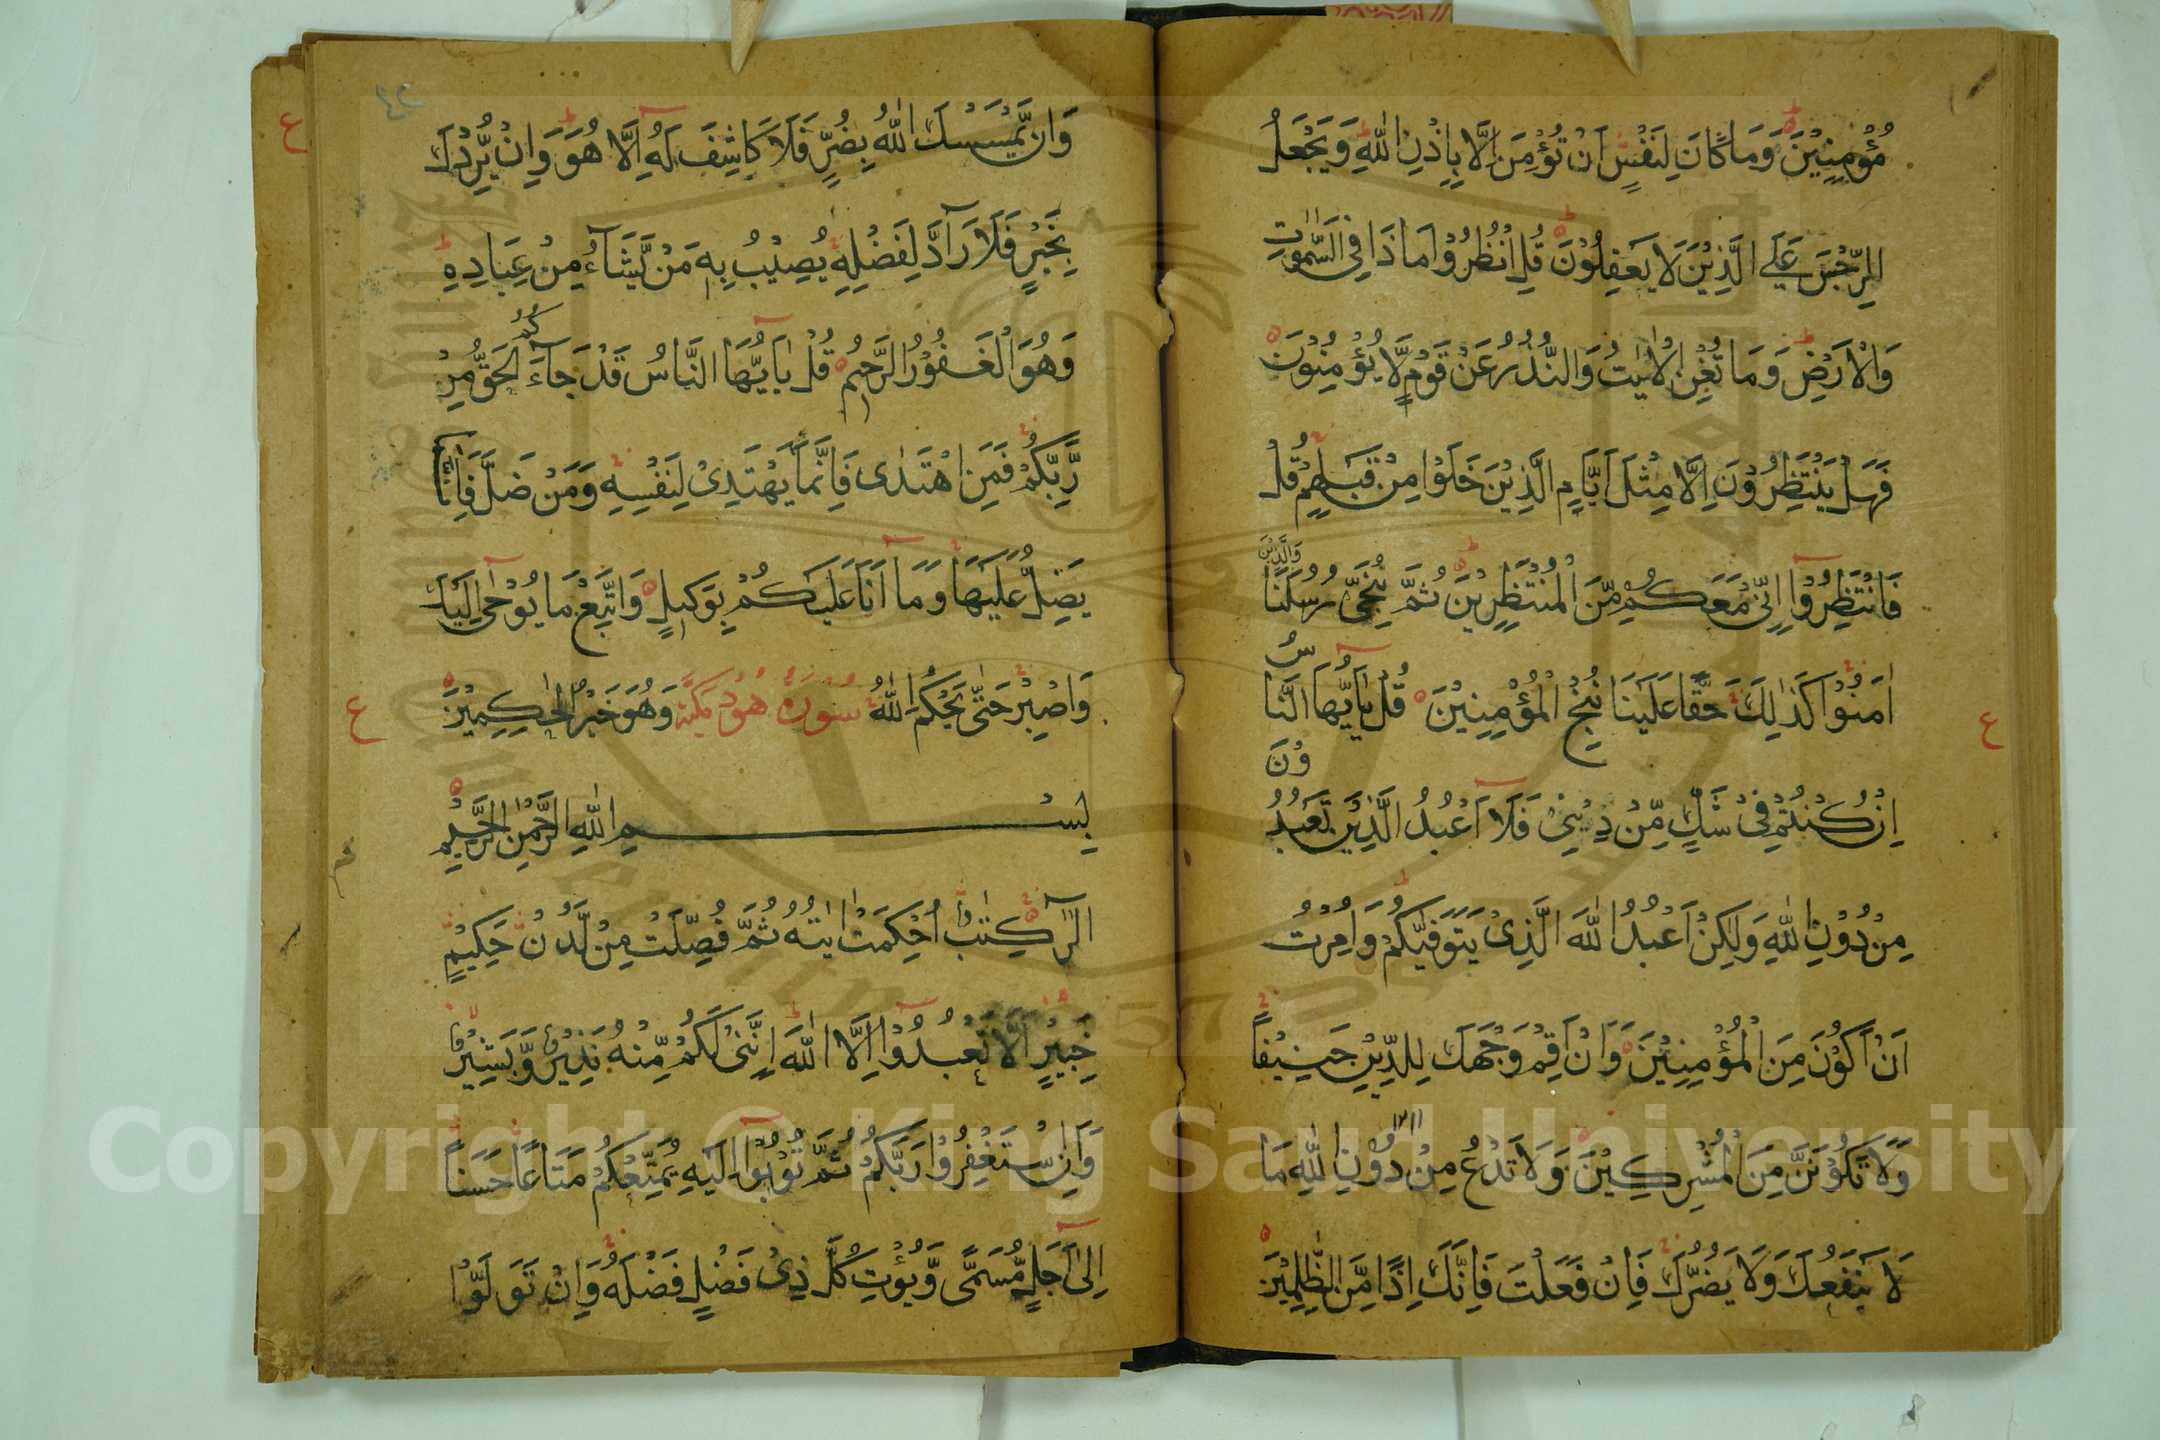 مُؤْمِنِيْنَ وَمَا كَانَ لِنَفْسٍ اَنْ تُؤْمِنَ اِلَّا بِاِذْنِ اللّٰهِ وَيَجْعَلُ
الرِّجْسَ عَلَى الَّذِيْنَ لَا يَعْقِلُوْنَ قُلِ انْظُرُوْا مَا ذَا فِى السَّمٰوٰتِ
وَالْاَرْضِ وَمَا تُغْنِ الْاٰيٰتُ وَالنُّذُرُ عَنْ قَوْمٍ لَّا يُؤْمِنُوْنَ
فَهَلْ يَنْتَظِرُوْنَ اِلَّا مِثْلَ اَيَّامِ الَّذِيْنَ خَلَوْا مِنْ قَبْلِهِمْ قُلْ
فَانْتَظِرُوْٓا اِنِّىْ مَعَكُمْ مِّنَ الْمُنْتَظِرِيْنَ ثُمَّ نُنَجِّىْ رُسُلَنَا وَالَّذِيْنَ
اٰمَنُوْا كَذٰلِكَ حَقًّا عَلَيْنَا نُنْجِ الْمُؤْمِنِيْنَ قُلْ يٰٓاَيُّهَا النَّاسُ
اِنْ كُنْتُمْ فِىْ شَكٍّ مِّنْ دِيْنِىْ فَلَآ اَعْبُدُ الَّذِيْنَ تَعْبُدُوْنَ
مِنْ دُوْنِ اللّٰهِ وَلٰكِنْ اَعْبُدُ اللّٰهَ الَّذِىْ يَتَوَفّٰىكُمْ وَاُمِرْتُ
اَنْ اَكُوْنَ مِنَ الْمُؤْمِنِيْنَ وَاَنْ اَقِمْ وَجْهَكَ لِلدِّيْنِ حَنِيْفًا
وَلَا تَكُوْنَنَّ مِنَ الْمُشْرِكِيْنَ وَلَا تَدْعُ مِنْ دُوْنِ اللّٰهِ مَا
لَا يَنْفَعُكَ وَلَا يَضُرُّكَ فَاِنْ فَعَلْتَ فَاِنَّكَ اِذًا مِّنَ الظّٰلِمِيْنَ
ع
وَاِنْ يَّمْسَسْكَ اللّٰهُ بِضُرٍّ فَلَا كَاشِفَ لَهٗٓ اِلَّا هُوَ وَاِنْ يُّرِدْكَ
بِخَيْرٍ فَلَا رَآدَّ لِفَضْلِهٖ يُصِيْبُ بِهٖ مَنْ يَّشَآءُ مِنْ عِبَادِهٖ
وَهُوَ الْغَفُوْرُ الرَّحِيْمُ قُلْ يٰٓاَيُّهَا النَّاسُ قَدْ جَآءَكُمُ الْحَقُّ مِنْ
رَّبِّكُمْ فَمَنِ اهْتَدٰى فَاِنَّمَا يَهْتَدِىْ لِنَفْسِهٖ وَمَنْ ضَلَّ فَاِنَّمَا
يَضِلُّ عَلَيْهَا وَمَآ اَنَا عَلَيْكُمْ بِوَكِيْلٍ وَاتَّبِعْ مَا يُوْحٰٓى اِلَيْكَ
وَاصْبِرْ حَتّٰى يَحْكُمَ اللّٰهُ سُوْرَةُ هُوْد مَكِّيَّة وَهُوَ خَيْرُ الْحٰكِمِيْنَ
بِسْمِ اللّٰهِ الرَّحْمٰنِ الرَّحِيْمِ
الٓرٰ كِتٰبٌ اُحْكِمَتْ اٰيٰتُهٗ ثُمَّ فُصِّلَتْ مِنْ لَّدُنْ حَكِيْمٍ
خَبِيْرٍ اَلَّا تَعْبُدُوْٓا اِلَّا اللّٰهَ اِنَّنِىْ لَكُمْ مِّنْهُ نَذِيْرٌ وَّبَشِيْرٌ
وَّاَنِ اسْتَغْفِرُوْا رَبَّكُمْ ثُمَّ تُوْبُوْٓا اِلَيْهِ يُمَتِّعْكُمْ مَتَاعًا حَسَنًا
اِلٰٓى اَجَلٍ مُّسَمًّى وَّيُؤْتِ كُلَّ ذِىْ فَضْلٍ فَضْلَهٗ وَاِنْ تَوَلَّوْا
ع
ع
Copyright © King Saud University